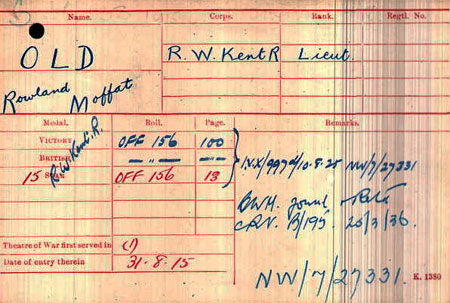 Name. Corps. Rank. Regtl. No.
OLD R.W. Kent R Lieut.
Rowland Moffat
Medal. Roll. Page. Remarks.
VICTORY OFF 156 100
BRITISH — " — — " —
15 STAR OFF 156 13
R.W. Kent. R.
10-8-25 NW/7/27331
Theatre of War first served in (1)
Date of entry therein 31-8-15
NW/7/27331. K. 1380